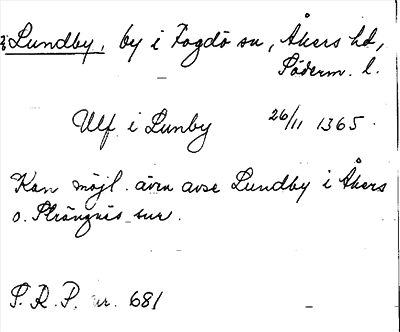 Lundby, by i Fogdö sn, Åkers hd,
Söderm. l.
Ulf i Lunby 26/11 1365.
Kan möjl. även avse Lundby i Åkers
o. Strängnäs snr.
S. R. P. nr. 681